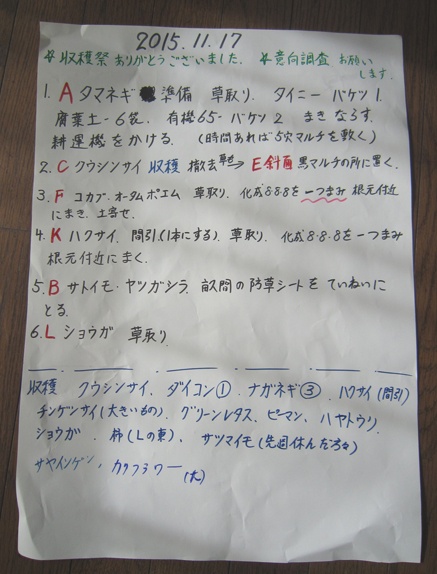 2015.11.17
☆収穫祭ありがとうございました. ☆意向調査 お願い
します.
1. A タマネギ 準備 草取り. タイニー バケツ 1.
腐葉土-6袋. 有機65-バケツ2 まき ならす.
耕運機をかける. (時間あれば5穴マルチを敷く)
2. C クウシンサイ 収穫 撤去 → E斜面 黒マルチの所に置く.
3. F コカブ・オータムポエム 草取り. 化成8・8・8を一つまみ 根元付近
にまき、土寄せ.
4. K ハクサイ. 間引(1本にする). 草取り. 化成8・8・8を一つまみ
根元付近にまく.
5. B サトイモ・ヤツガシラ. 畝間の防草シートをていねいに
とる.
6. L ショウガ 草取り.
収穫 クウシンサイ、ダイコン①、ナガネギ③、ハクサイ(間引)
チンゲンサイ(大きいもの)、グリーンレタス、ピーマン、ハヤトウリ、
ショウガ、柿(Lの東)、サツマイモ(先週休んだ
サヤインゲン、カリフラワー(大)